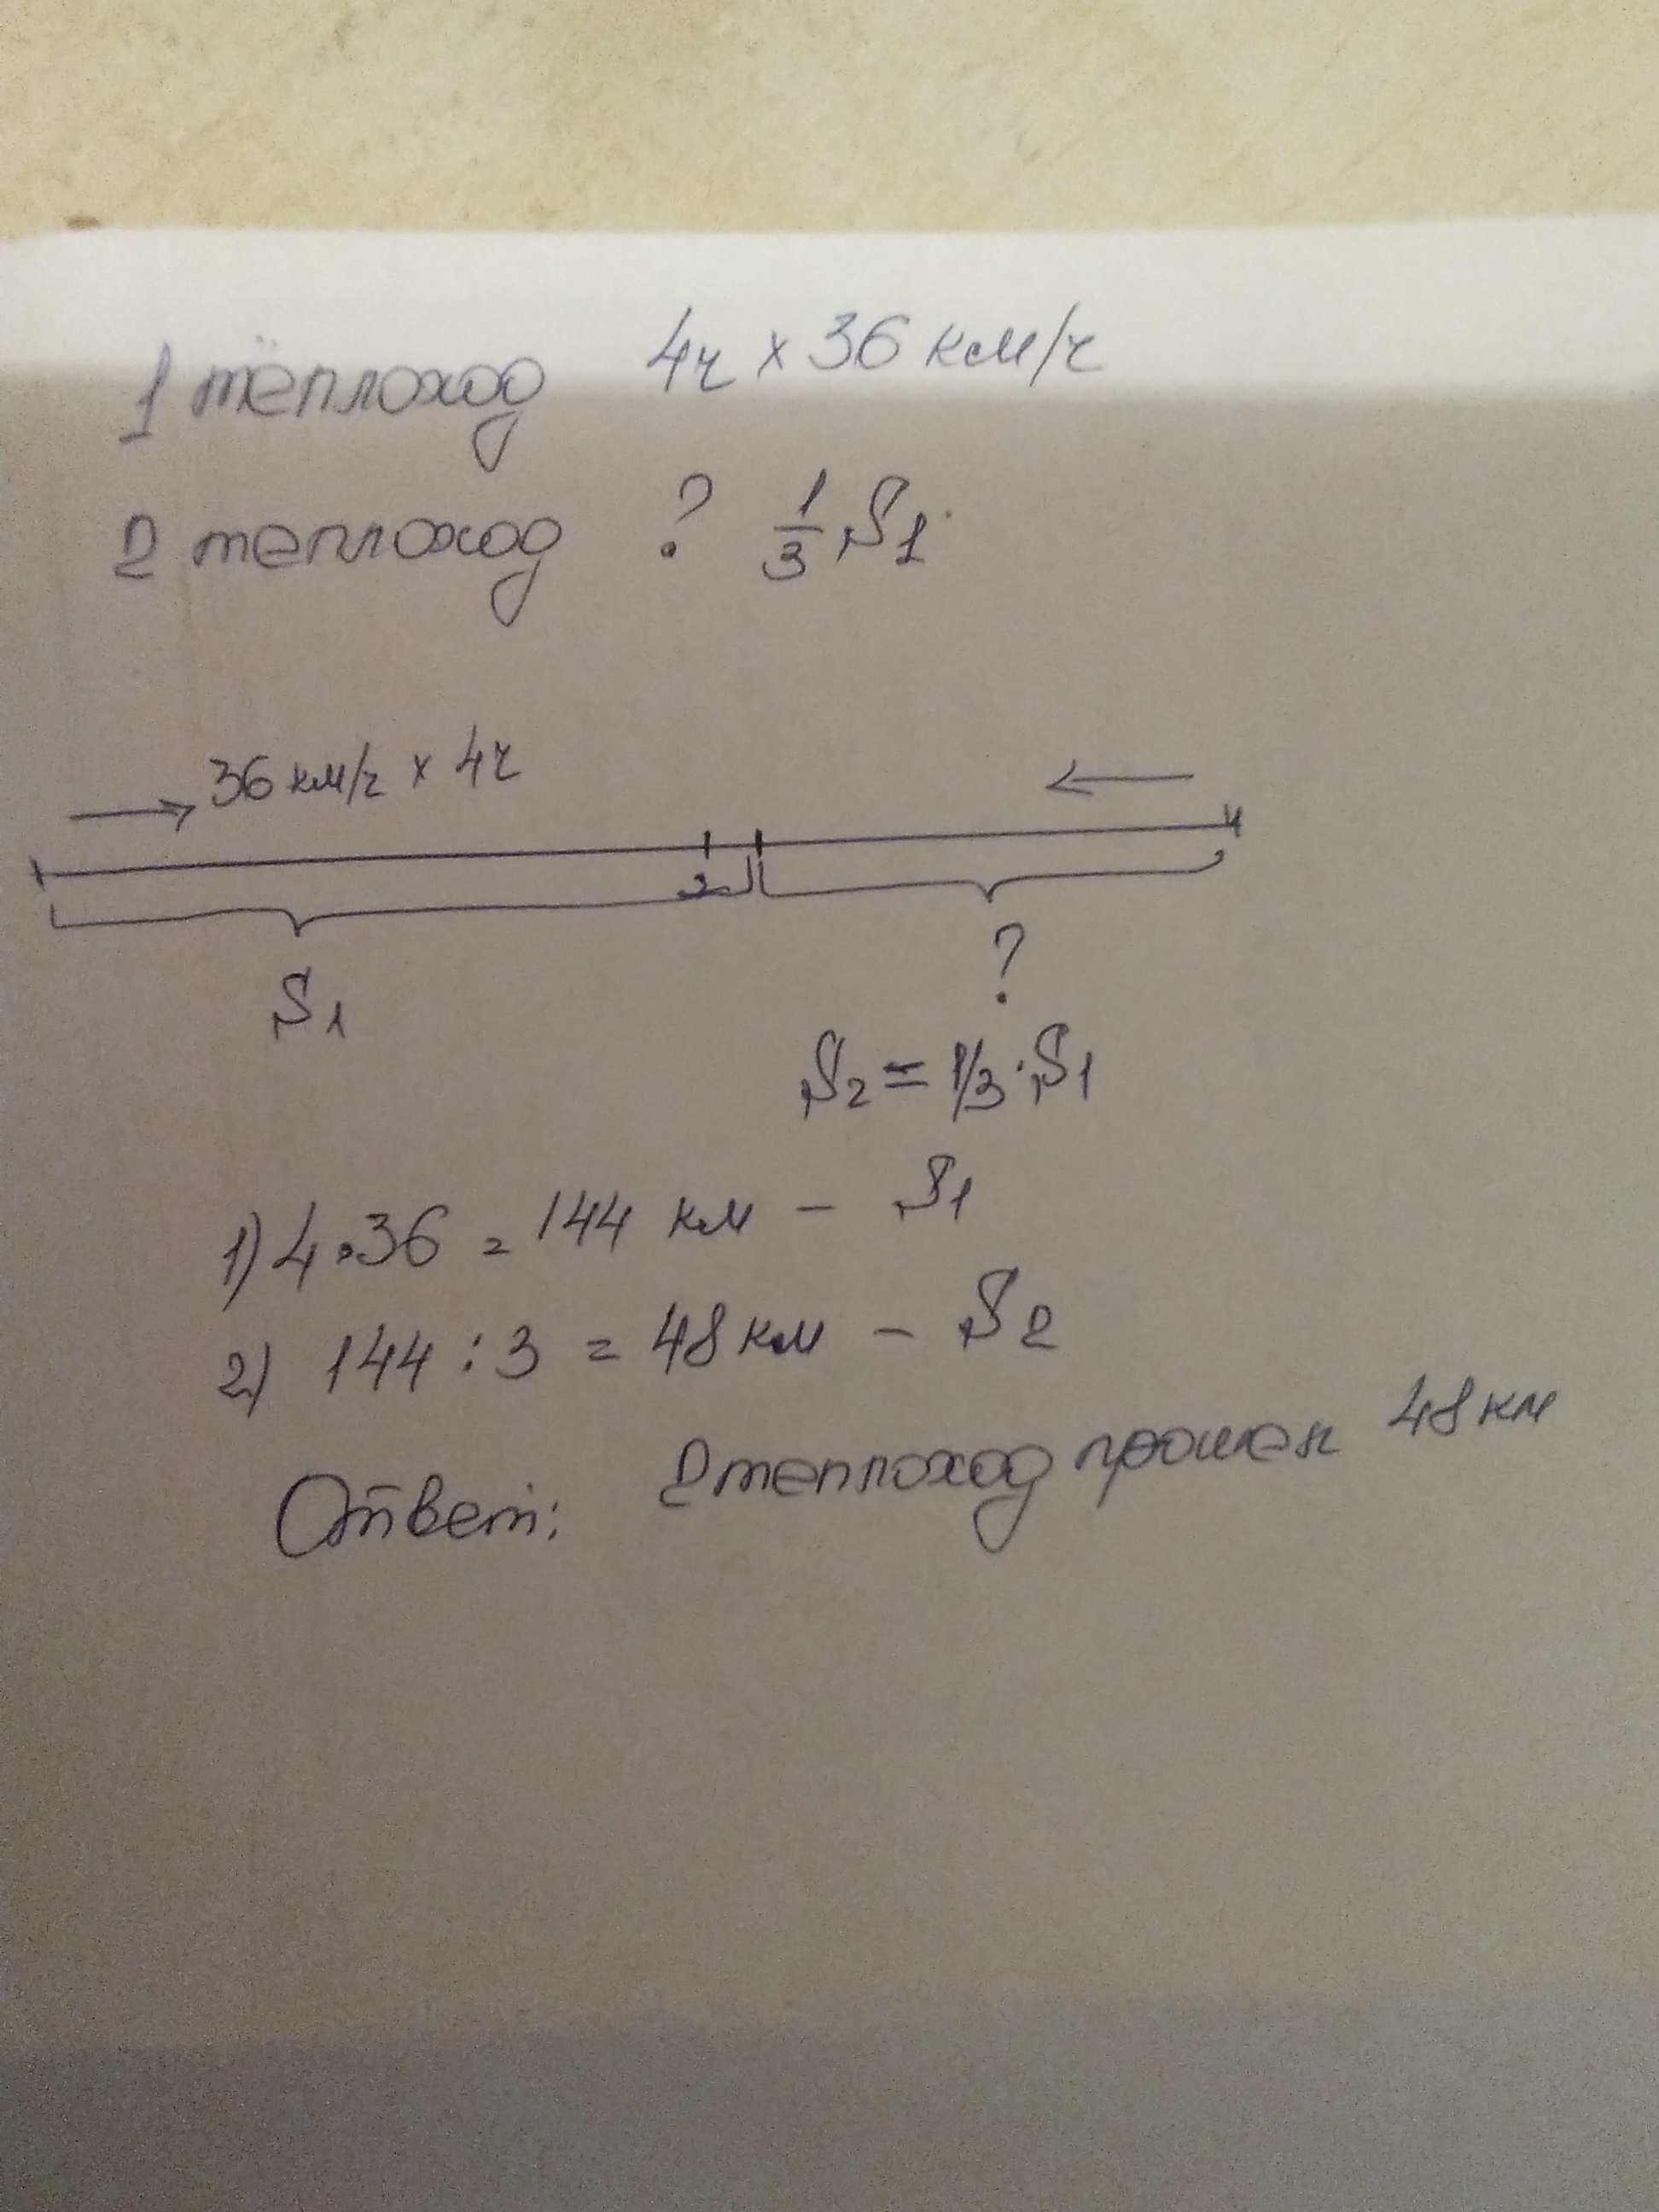 1 теплоход 4ч х 36 км/ч
2 теплоход ? 1/3 S1
36 км/ч х 4ч
S1
?
S2 = 1/3 · S1
1) 4 · 36 = 144 км – S1
2) 144 : 3 = 48 км – S2
Ответ: 2 теплоход прошел 48 км